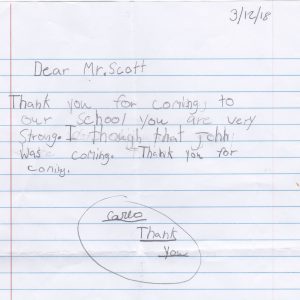 3/12/18
Dear Mr. Scott
Thank you for coming, to
our school you are very
Strong. I though that John
Was coming. Thank you for
coming.
Carlo
Thank
you